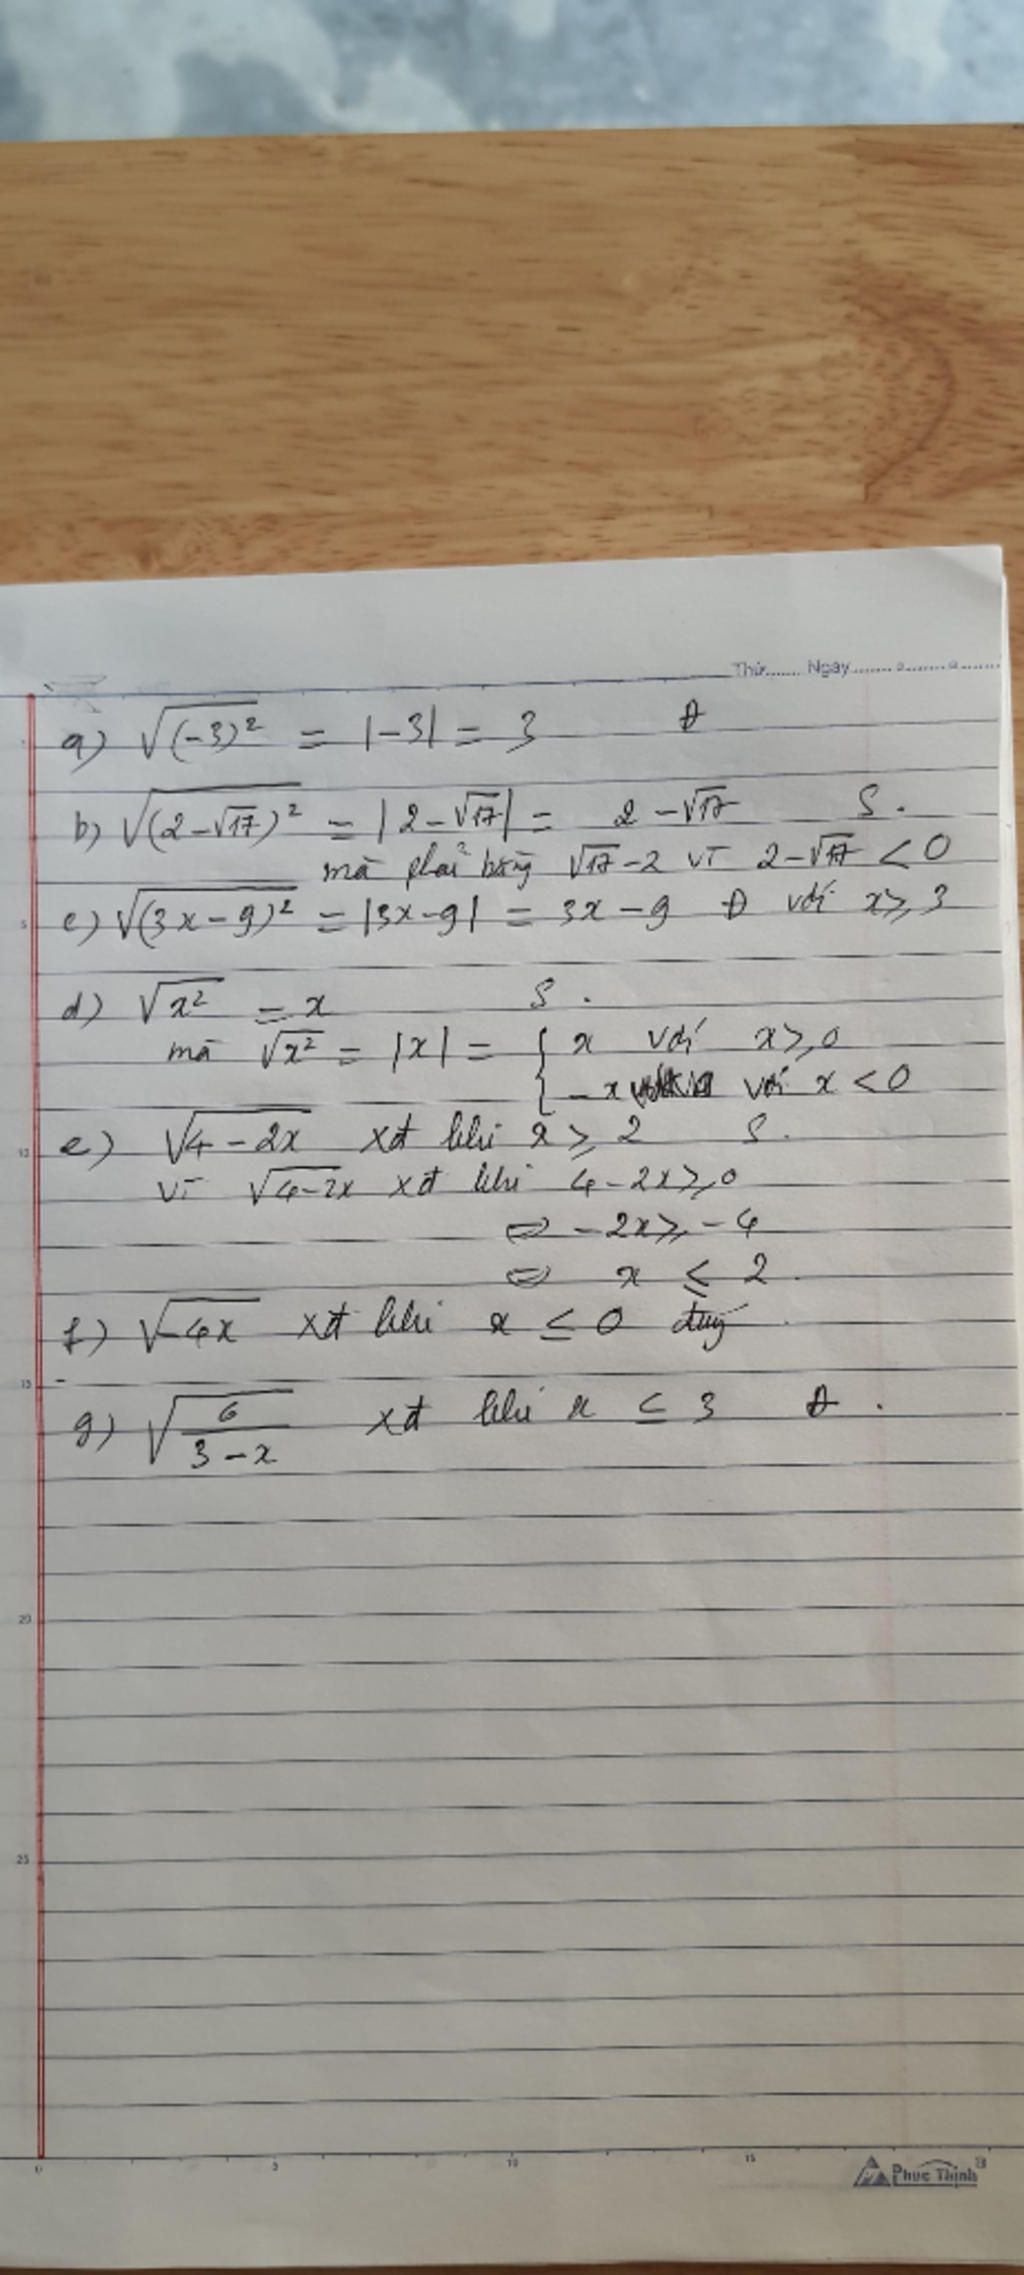 Thứ....... Ngày........................
a) √(-3)² = |-3| = 3 Đ
b) √(2-√17)² = |2-√17| = 2-√17 S.
mà phải bằng √17-2 vì 2-√17 < 0
c) √(3x-9)² = |3x-9| = 3x-9 Đ với x ≥ 3
d) √x² = x S.
mà √x² = |x| = { x với x ≥ 0
-x với x < 0
e) √4-2x xđ khi x ≥ 2 S.
vì √4-2x xđ khi 4-2x ≥ 0
⇔ -2x ≥ -4
⇔ x ≤ 2.
f) √-4x xđ khi x ≤ 0 đúng
g) √6/(3-x) xđ khi x ≤ 3 Đ.
5
10
15
20
25
0 5 10 15
Phuc Thinh